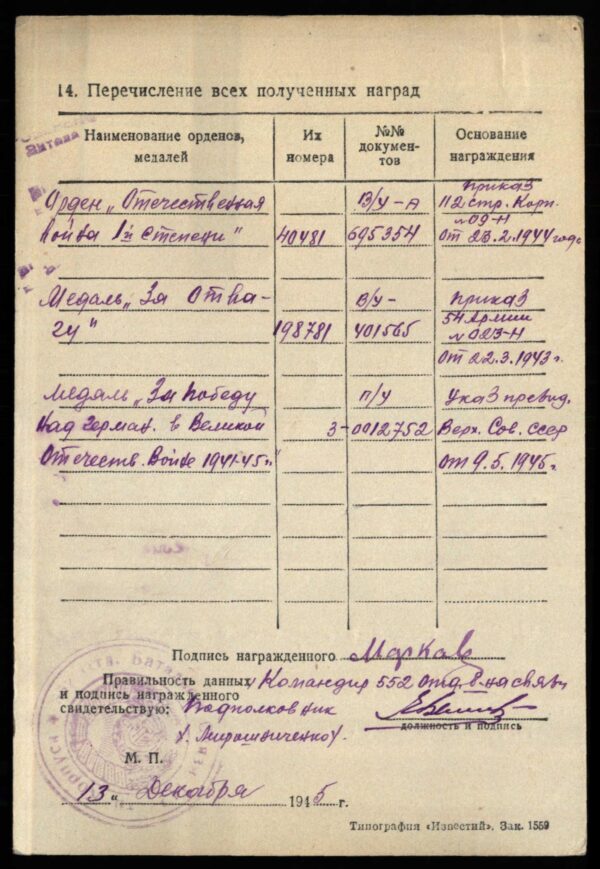 14. Перечисление всех полученных наград
Наименование орденов, медалей
Их номера
№№ документов
Основание награждения
Орден „Отечественная В/У-А приказ 112 стр. Корп.
Война 1й степени" 40481 695354 №09-Н от 23.2.1944 года
Медаль „За Отва- В/У- приказ
гу" 198781 401565 54 Армии №023-Н
от 22.3.1943 г.
Медаль „За победу П/У Указ презид.
над герман. в Великой З-0012752 Верх. Сов. СССР
Отечеств. Войне 1941-45 г." от 9.5.1945г.
Подпись награжденного
Правильность данных Командир 552 Отд. б-на связи
и подпись награжденного
свидетельствую: Подполковник
должность и подпись
/. Мирошниченко/.
М. П.
„13" Декабря 1945 г.
Типография «Известий». Зак. 1559